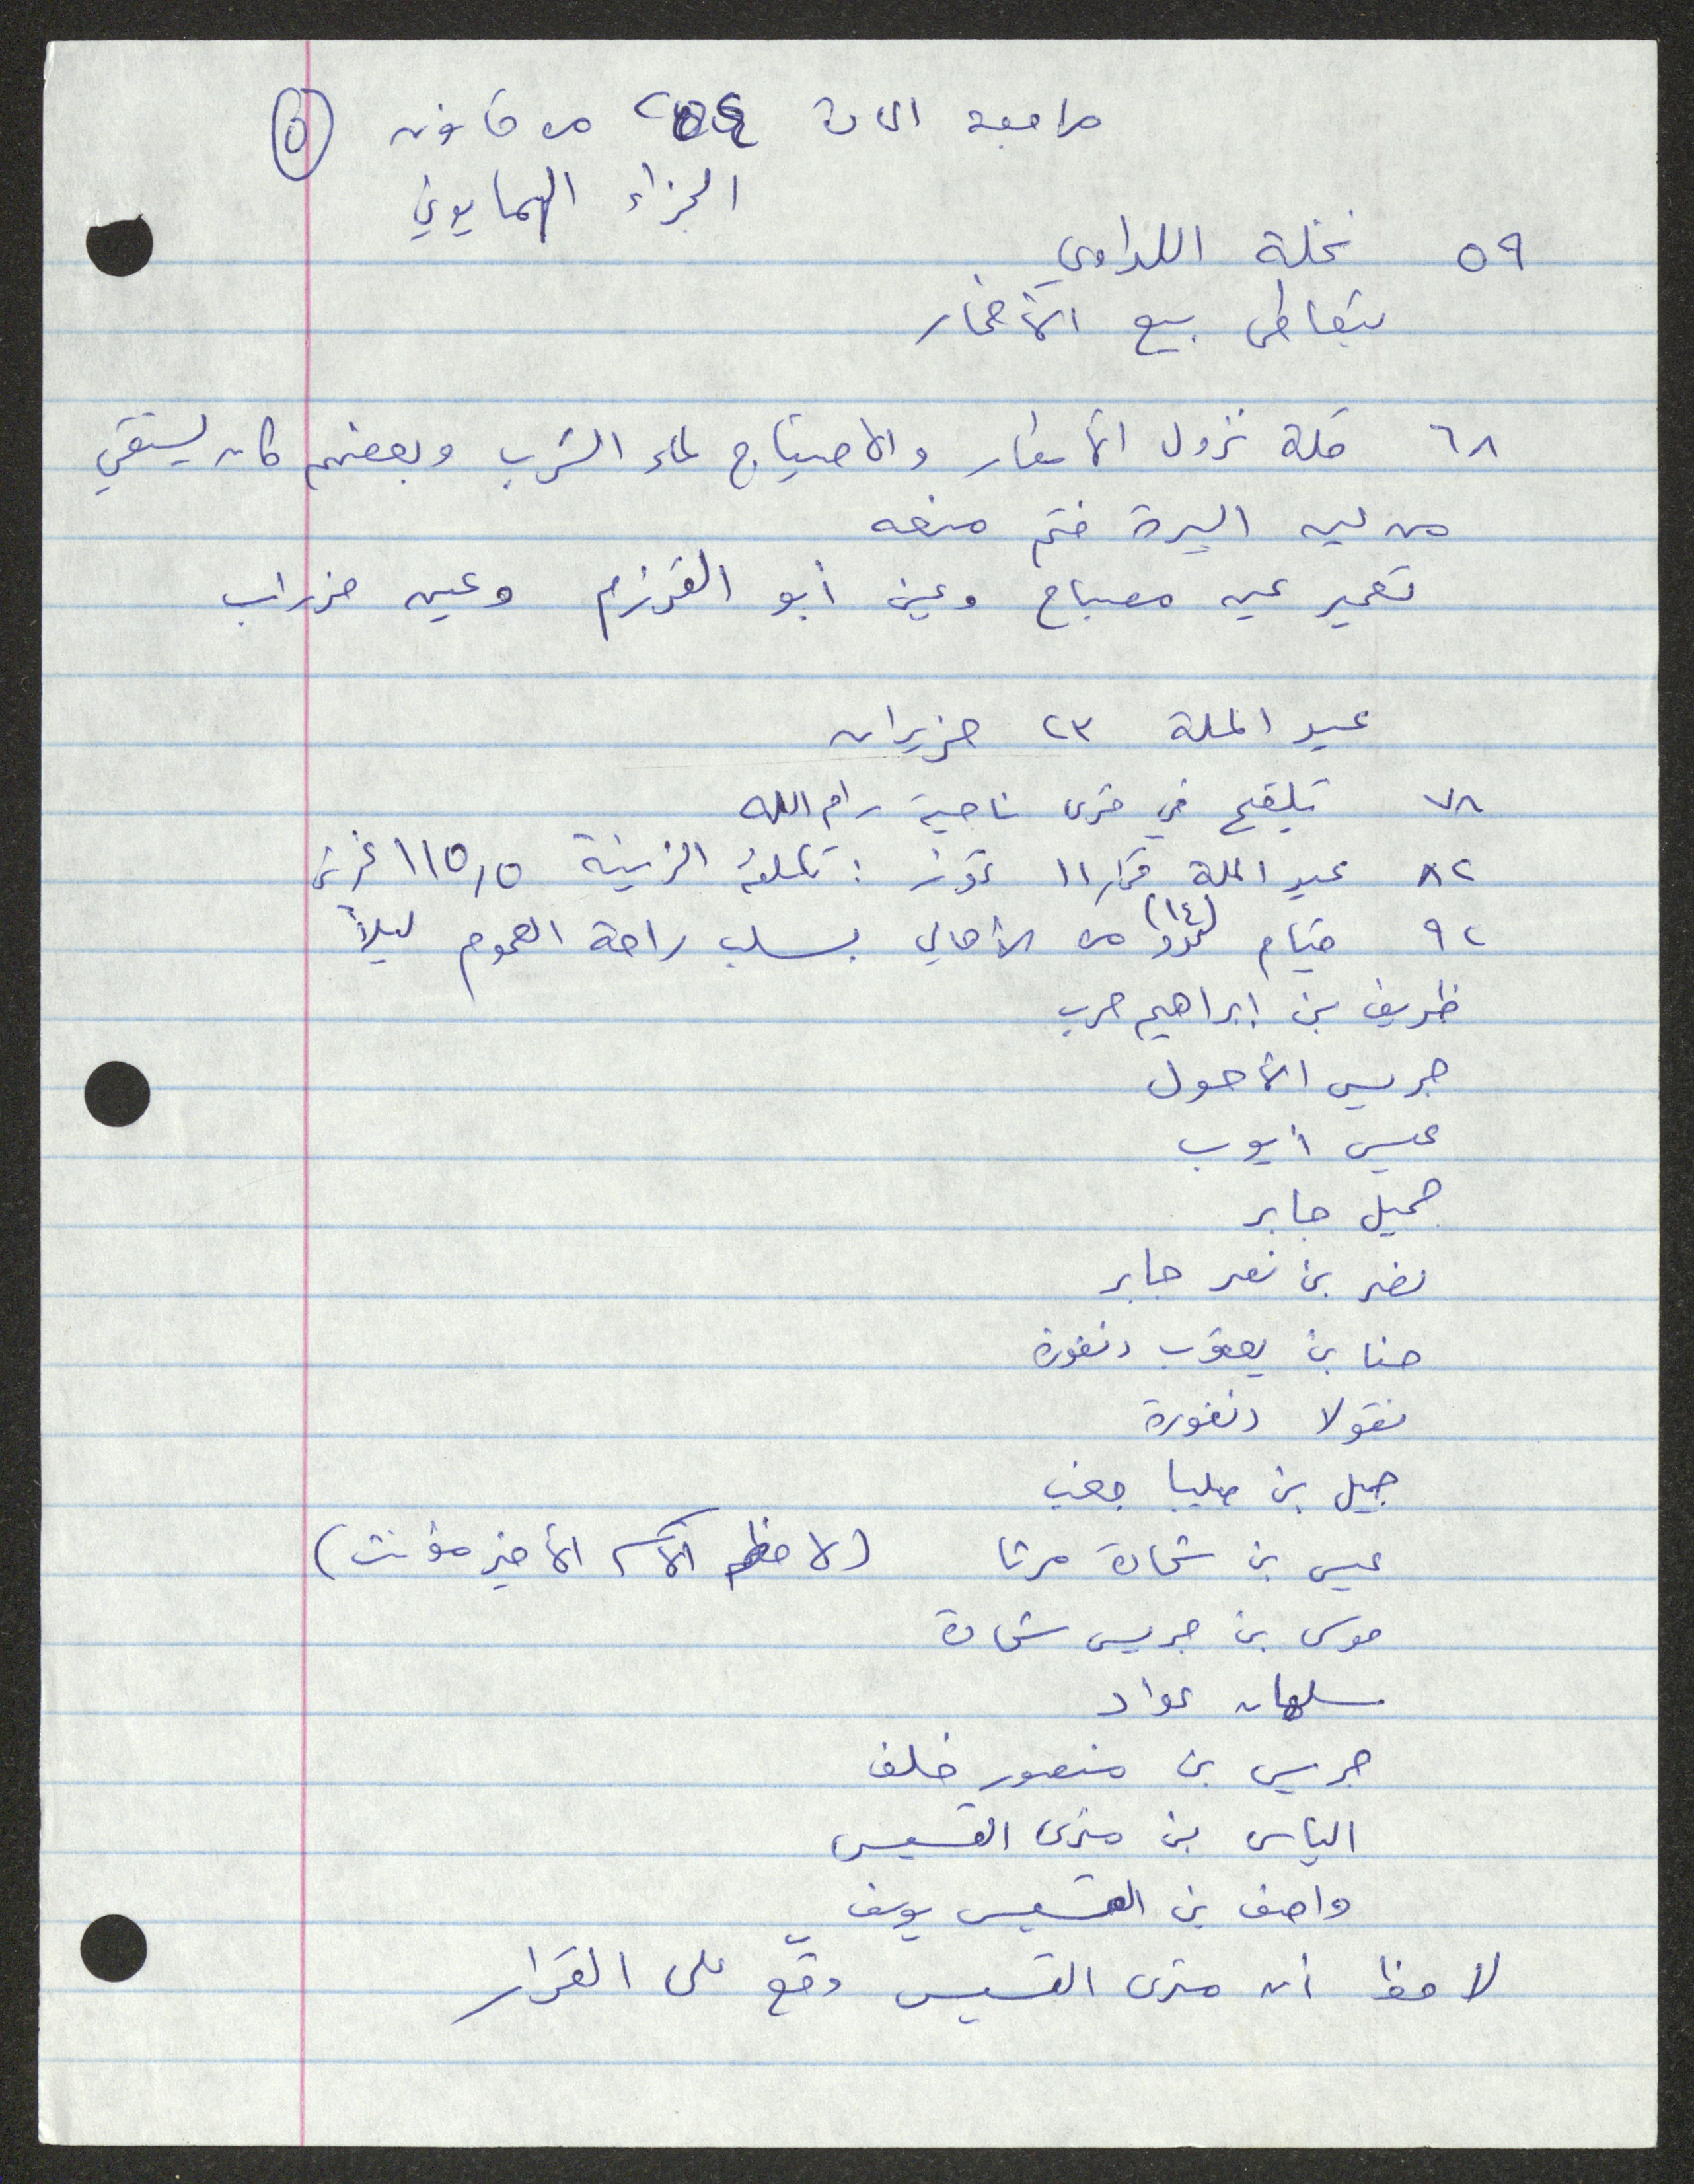 مراجعة المادة ٢٥٤ من قانون ٥
الجزاء الهمايوني
٥٩ نخلة اللداوي
يتعاطى بيع الأخمار
٦٨ قلة نزول الأمطار والاحتياج لماء الشرب وبعضهم كان يستقي
من البيرة فتم منعه
تعمير عين مصباح وعين أبو القرزم وعين مزراب
عيد الملة ٢٣ حزيران
٧٨ تلقيح في قرى ناحية رام الله
٨٢ عيد الملة ١١ تموز : تكلفة الزينة ١١٥,٥ غرش
٩٢ قيام (١٤) من الأهالي بسلب راحة العموم ليلاً
ظريف بن ابراهيم حرب
جريس الأحول
عيسى أيوب
جميل جابر
نصر بن نصر جابر
حنا بن يعقوب دنفورة
نقولا دنفورة
جميل بن صليبا جغب
عيسى بن شحادة مرتا (لاحظ الاسم الأخير مؤنث)
موسى بن جريس شحادة
سلمان عواد
جريس بن منصور خلف
الياس بن متري القسيس
واصف بن القسيس يوسف
لاحظ أن متري القسيس وقّع على القرار